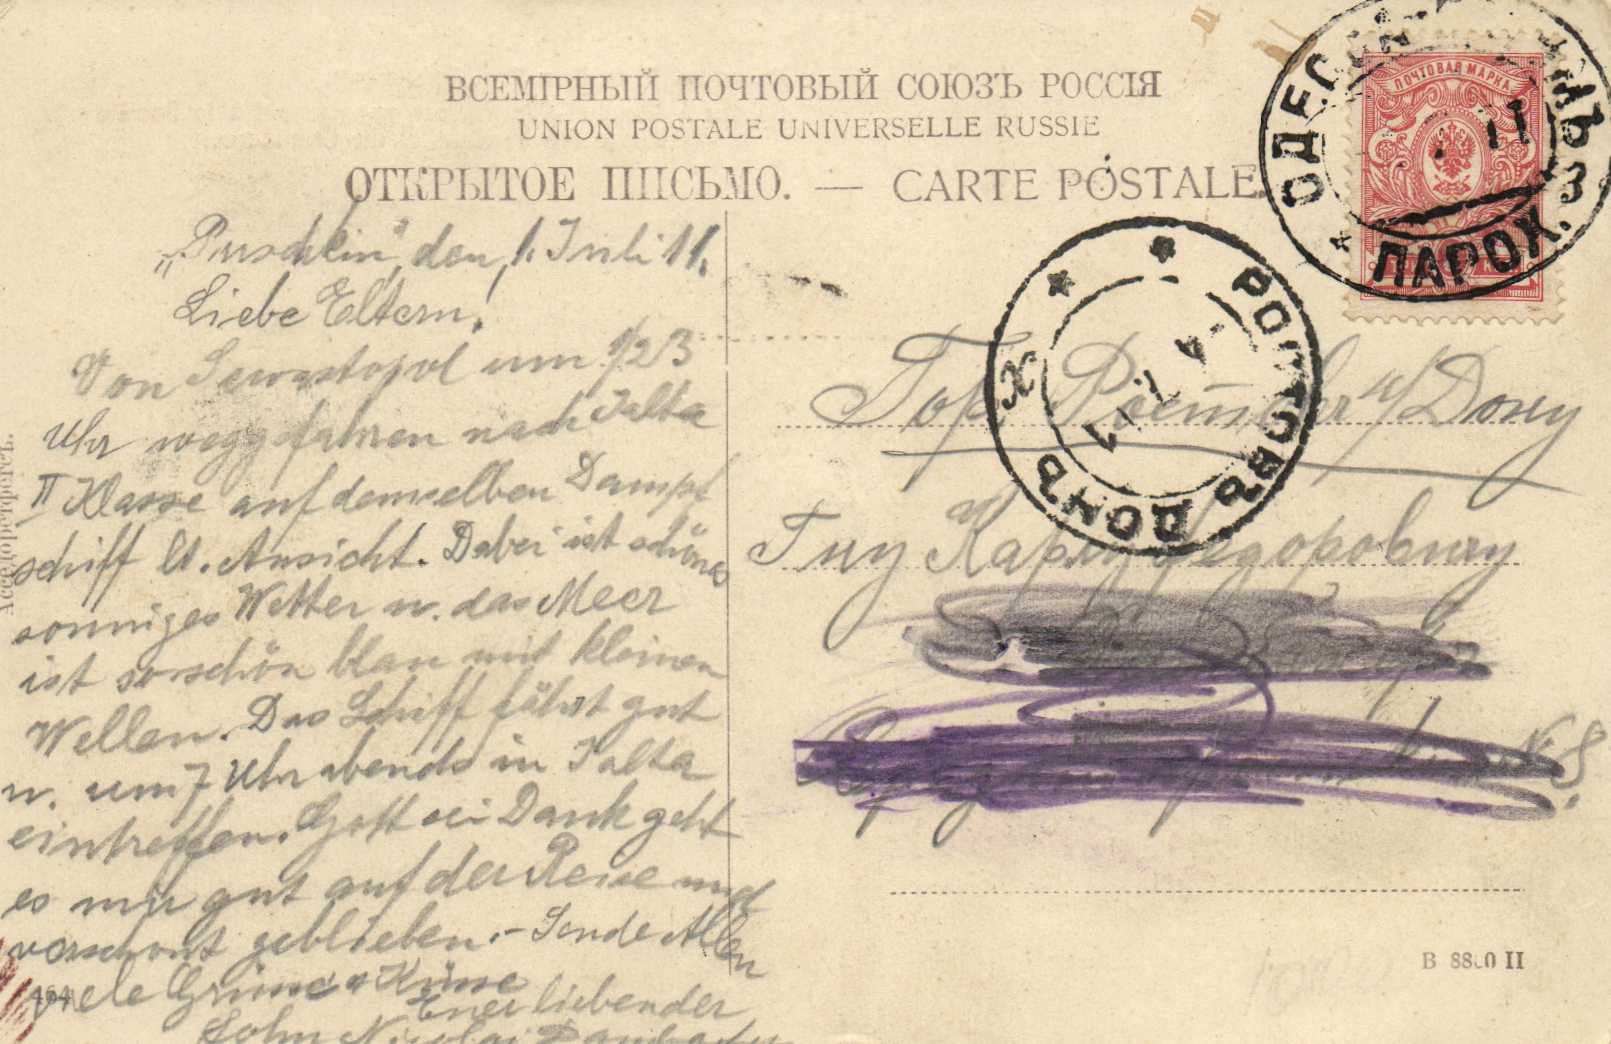 ВСЕМІРНЫЙ ПОЧТОВЫЙ СОЮЗЪ РОССІЯ
UNION POSTALE UNIVERSELLE RUSSIE
ОТКРЫТОЕ ПИСЬМО. — CARTE POSTALE.
ПОЧТОВАЯ МАРКА
ОДЕССА
ПАРОХ.
3
11
РОСТОВЪ ДОНЪ
4 7 11
„Puschkin“, den 1. Juli 11.
Liebe Eltern,
Von Sewastopol um 1/2 3
Uhr weggefahren nach Jalta
II Klasse auf demselben Dampf
schiff lt. Ansicht. Dabei ist schönes
sonniges Wetter u. das Meer
ist so schön blau mit kleinen
Wellen. Das Schiff fährt gut
u. um 7 Uhr abends in Jalta
eintreffen. Gott sei Dank geht
es mir gut auf der Reise und
verschont geblieben. – Sende Allen
viele Grüsse u Küsse
Euer liebender
Sohn Nicolai
Гор. Ростовъ н/Дону
Гну Карлу Федоровичу
№ 8.
B 8880 II
464
Асседоретфегсъ.